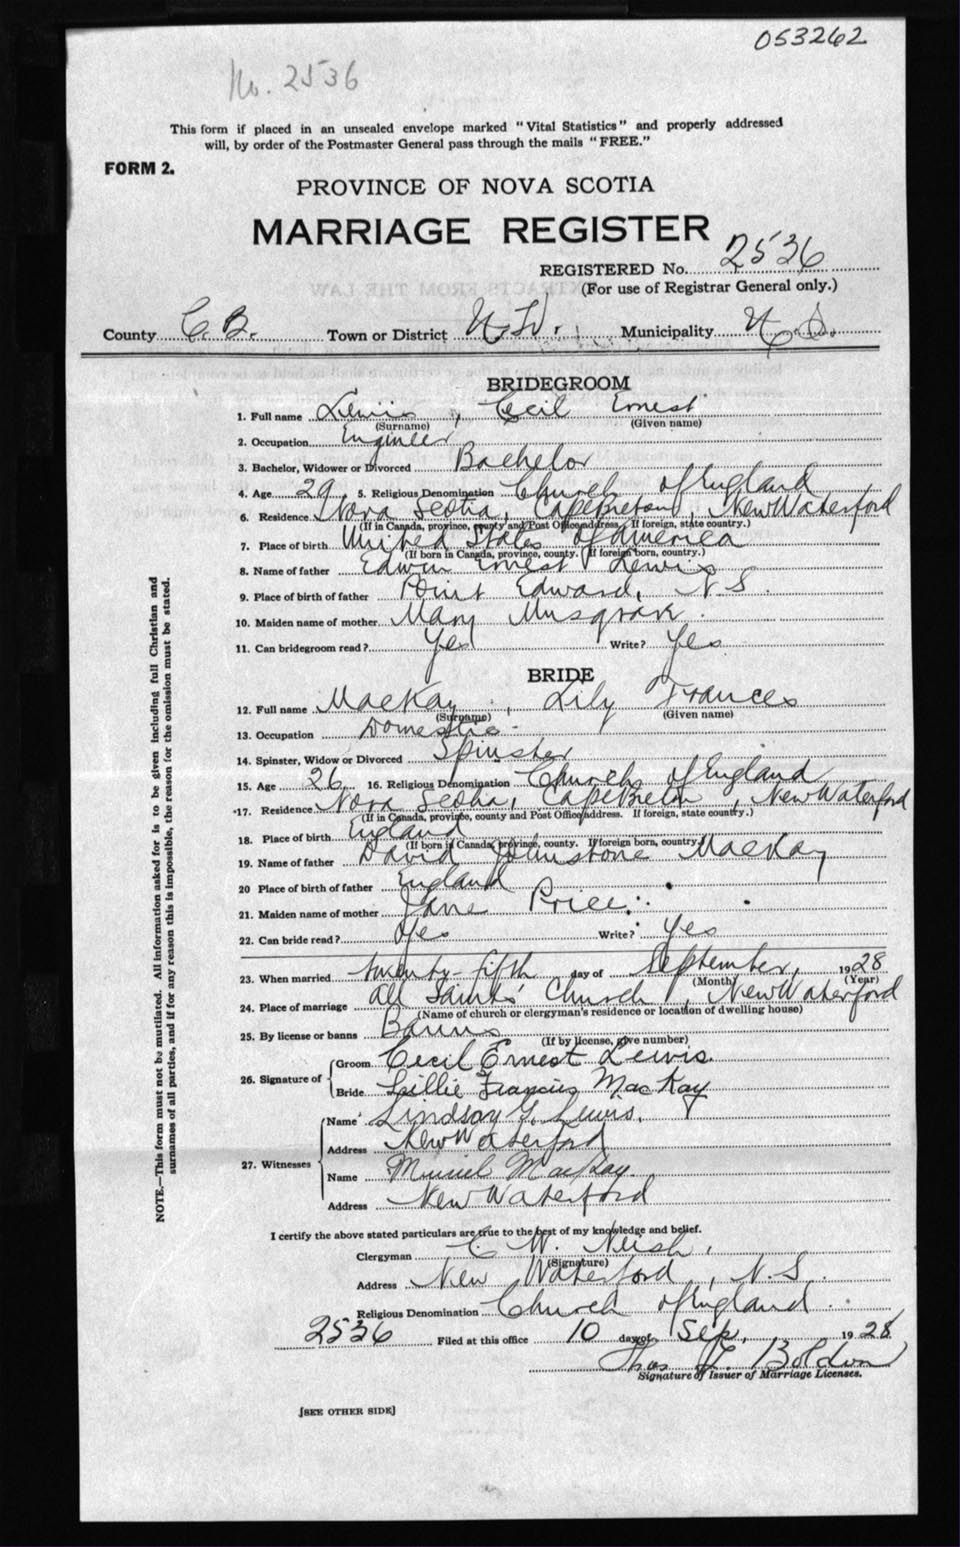 053262
No. 2536
This form if placed in an unsealed envelope marked "Vital Statistics" and properly addressed
will, by order of the Postmaster General pass through the mails "FREE."
FORM 2.
PROVINCE OF NOVA SCOTIA
MARRIAGE REGISTER
REGISTERED No. 2536
(For use of Registrar General only.)
County C. B. Town or District N. W. Municipality
BRIDEGROOM
1. Full name Lewis, Cecil Ernest
(Surname) (Given name)
2. Occupation Engineer
3. Bachelor, Widower or Divorced Bachelor
4. Age 29. 5. Religious Denomination Church of England
6. Residence Nova Scotia, Cape Breton, New Waterford
(If in Canada, province, county and Post Office address. If foreign, state country.)
7. Place of birth United States of America
(If born in Canada, province, county. If foreign born, country.)
8. Name of father Edwin Ernest Lewis
9. Place of birth of father Point Edward, N. S.
10. Maiden name of mother Mary
11. Can bridegroom read? Yes Write? Yes
BRIDE
12. Full name MacKay, Lily Frances
(Surname) (Given name)
13. Occupation Domestic
14. Spinster, Widow or Divorced Spinster
15. Age 26 16. Religious Denomination Church of England
17. Residence Nova Scotia, Cape Breton, New Waterford
(If in Canada, province, county and Post Office address. If foreign, state country.)
18. Place of birth England
(If born in Canada, province, county. If foreign born, country.)
19. Name of father David Johnstone MacKay
20 Place of birth of father England
21. Maiden name of mother Jane Price
22. Can bride read? Yes Write? Yes
23. When married twenty-fifth day of September, 1928
(Month) (Year)
24. Place of marriage All Saints' Church, New Waterford
(Name of church or clergyman's residence or location of dwelling house)
25. By license or banns Banns
(If by license, give number)
26. Signature of
Groom Cecil Ernest Lewis.
Bride Lillie Francis MacKay
27. Witnesses
Name Lindsay G. Lewis.
Address New Waterford
Name Muriel MacKay
Address New Waterford
I certify the above stated particulars are true to the best of my knowledge and belief.
Clergyman C. W. Neish,
(Signature)
Address New Waterford, N. S.
Religious Denomination Church of England.
2536 Filed at this office 10 day of Sep. 1928
Thos Boldon
Signature of Issuer of Marriage Licenses.
[SEE OTHER SIDE]
NOTE.—This form must not be mutilated. All information asked for is to be given including full Christian and
surnames of all parties, and if for any reason this is impossible, the reason for the omission must be stated.